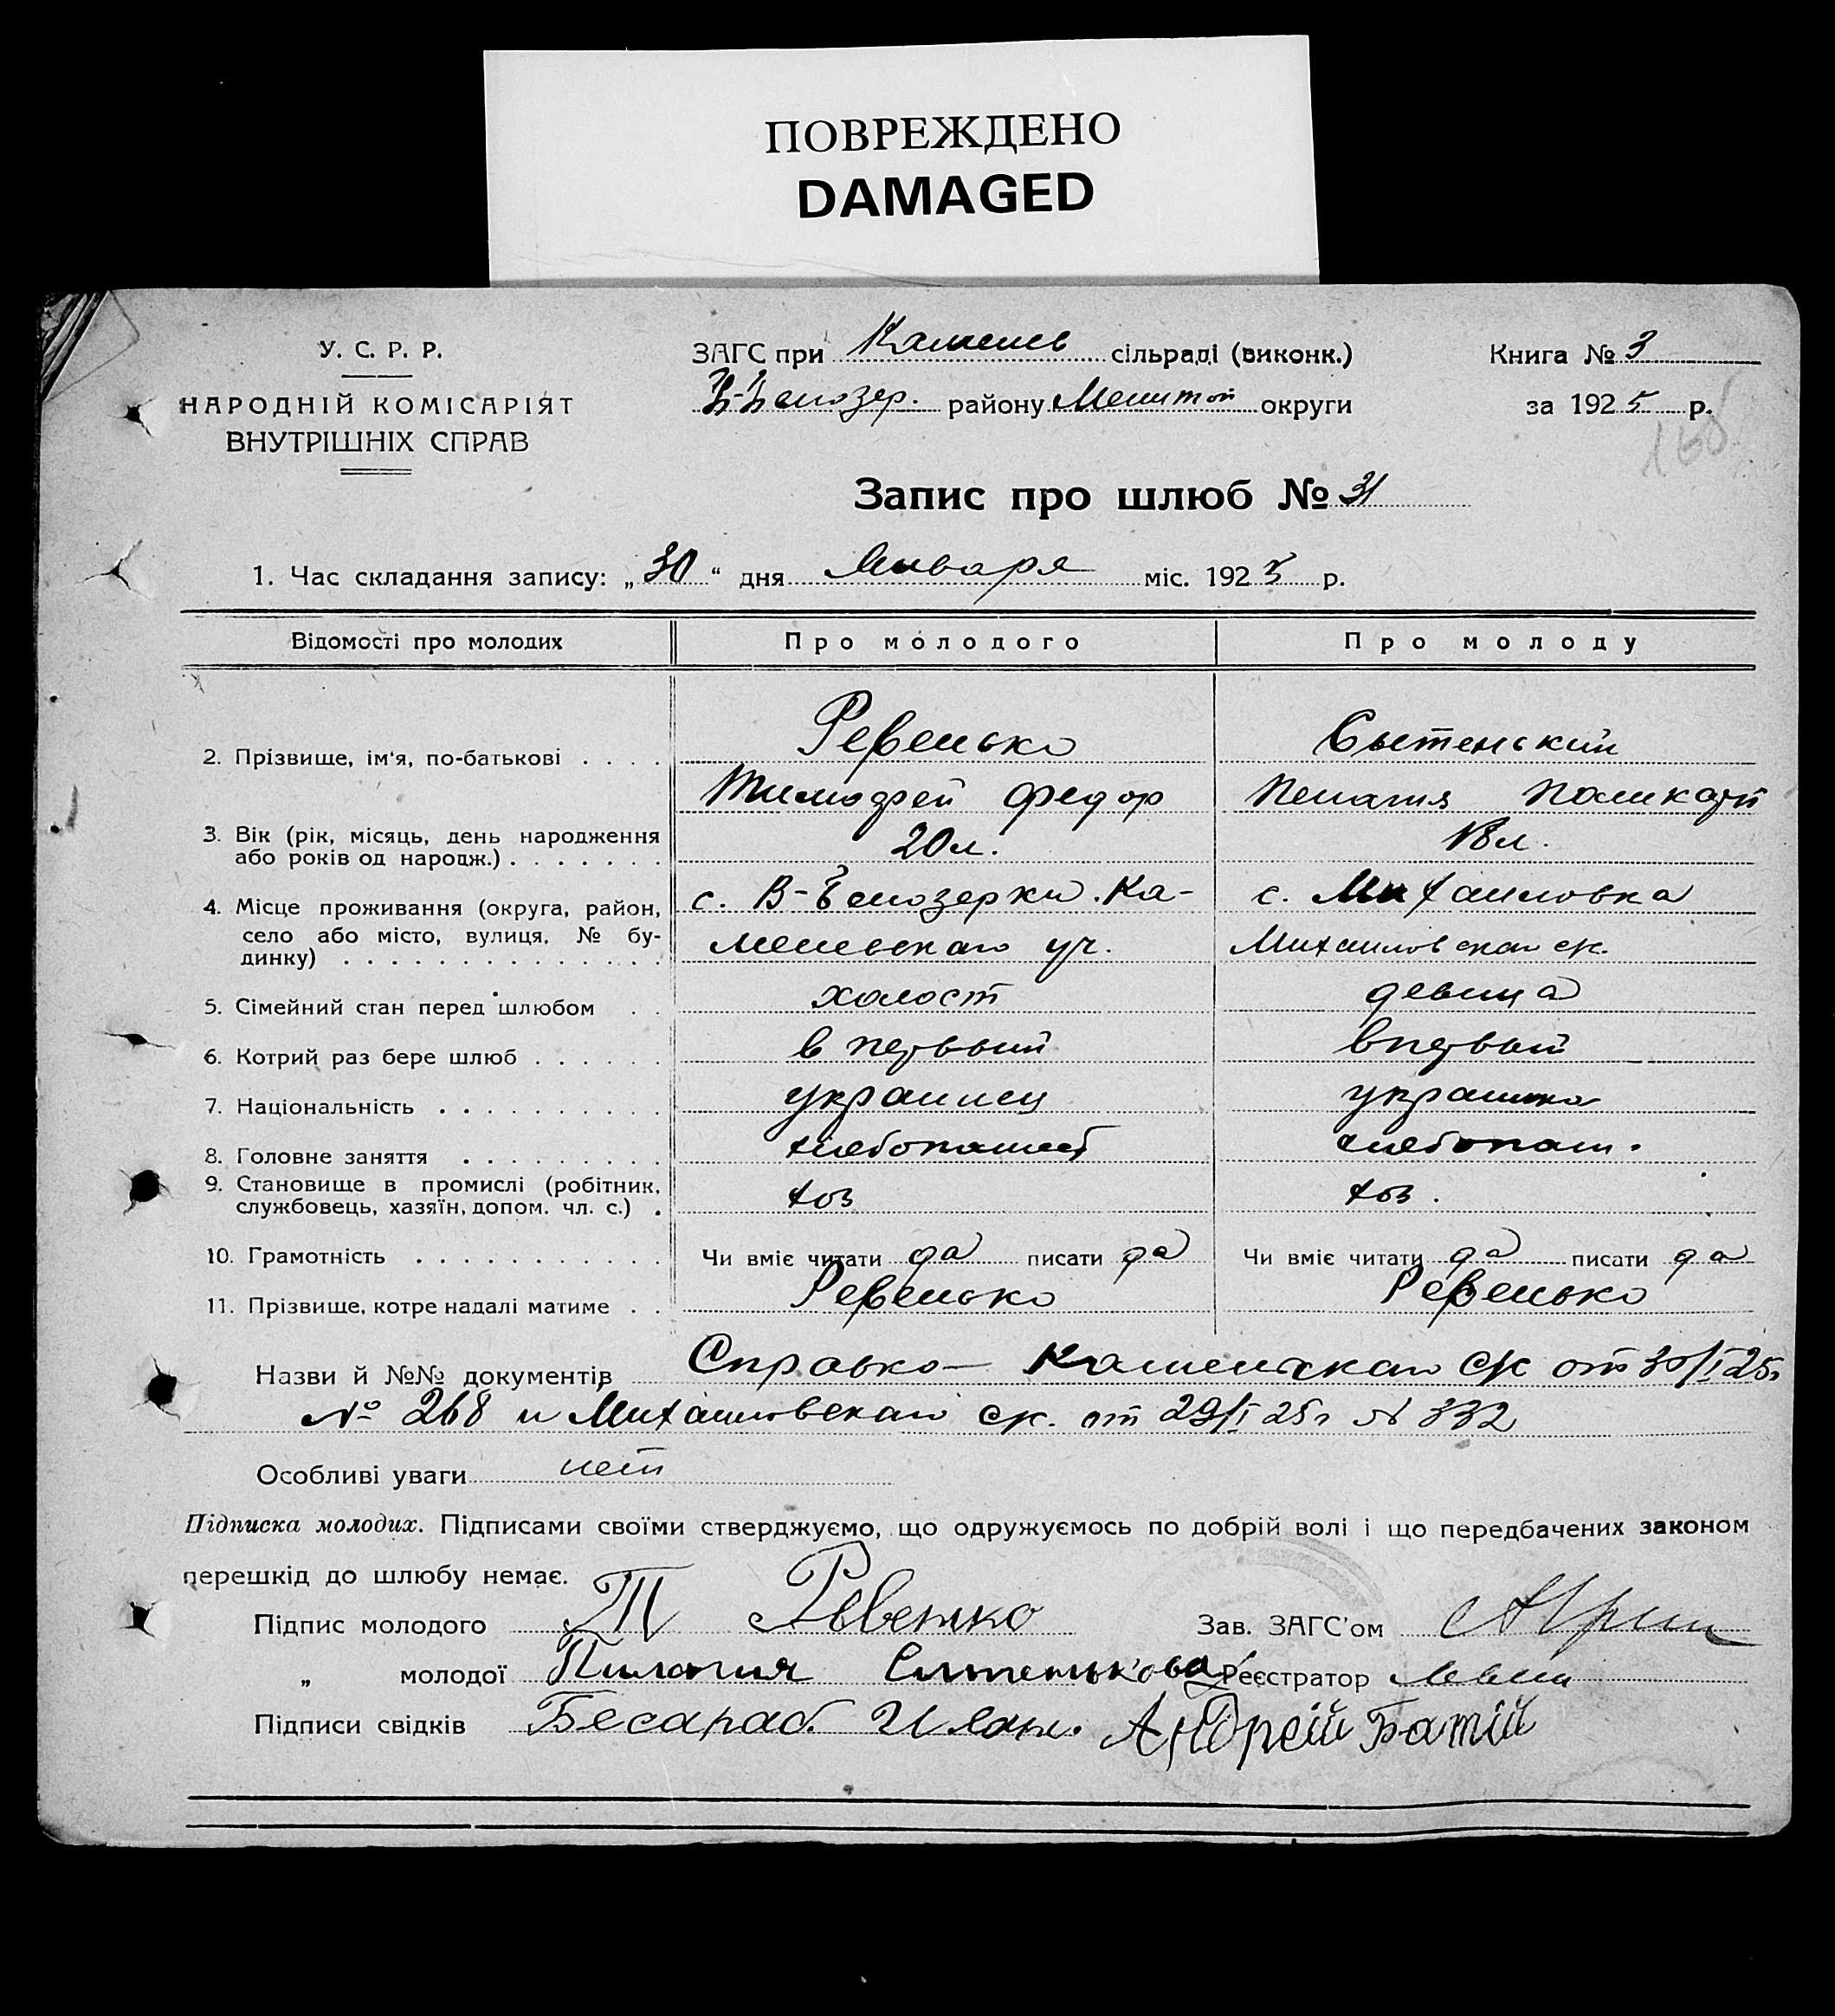 ПОВРЕЖДЕНО
DAMAGED
У. С. Р. Р.
НАРОДНІЙ КОМІСАРІЯТ
ВНУТРІШНІХ СПРАВ
ЗАГС при Каменев сільраді (виконк.)
району Мелитоп округи
Книга № 3
за 1925 р.
Запис про шлюб № 31
1. Час складання запису: „30“ дня Января міс. 1925 р.
Відомості про молодих Про молодого Про молоду
2. Прізвище, ім'я, по-батькові . . . . Ревенько
Тимофей Федор Пелагия Поликарп
3. Вік (рік, місяць, день народження
або років од народж.) . . . . . . . 20 л. 18 л.
4. Місце проживання (округа, район,
село або місто, вулиця, № бу-
динку) . . . . . . . . . . . . . .
с. В-Белозерки. Ка-
меневского уч.
с. Михайловка
Михайловского с/с.
5. Сімейний стан перед шлюбом . . холост девица
6. Котрий раз бере шлюб . . . . . . в первый впервый
7. Національність . . . . . . . . . . украинец украинка
8. Головне заняття . . . . . . . . . хлебопашец хлебопаш.
9. Становище в промислі (робітник,
службовець, хазяїн, допом. чл. с.) . хоз хоз.
10. Грамотність . . . . . . . . . . . Чи вміє читати да писати да Чи вміє читати да писати да
11. Прізвище, котре надалі матиме . . Ревенько Ревенько
Назви й №№ документів Справка Каменского с/с от 30/I 25г
№ 268 и Михайловского с/с. от 29/I 25г № 332
Особливі уваги нет
Підписка молодих. Підписами своїми стверджуємо, що одружуємось по добрій волі і що передбачених законом
перешкід до шлюбу немає.
Підпис молодого Т Ревенко Зав. ЗАГС'ом
„ молодої Пилагия Реєстратор
Підписи свідків Бесараб. Андрей Батій